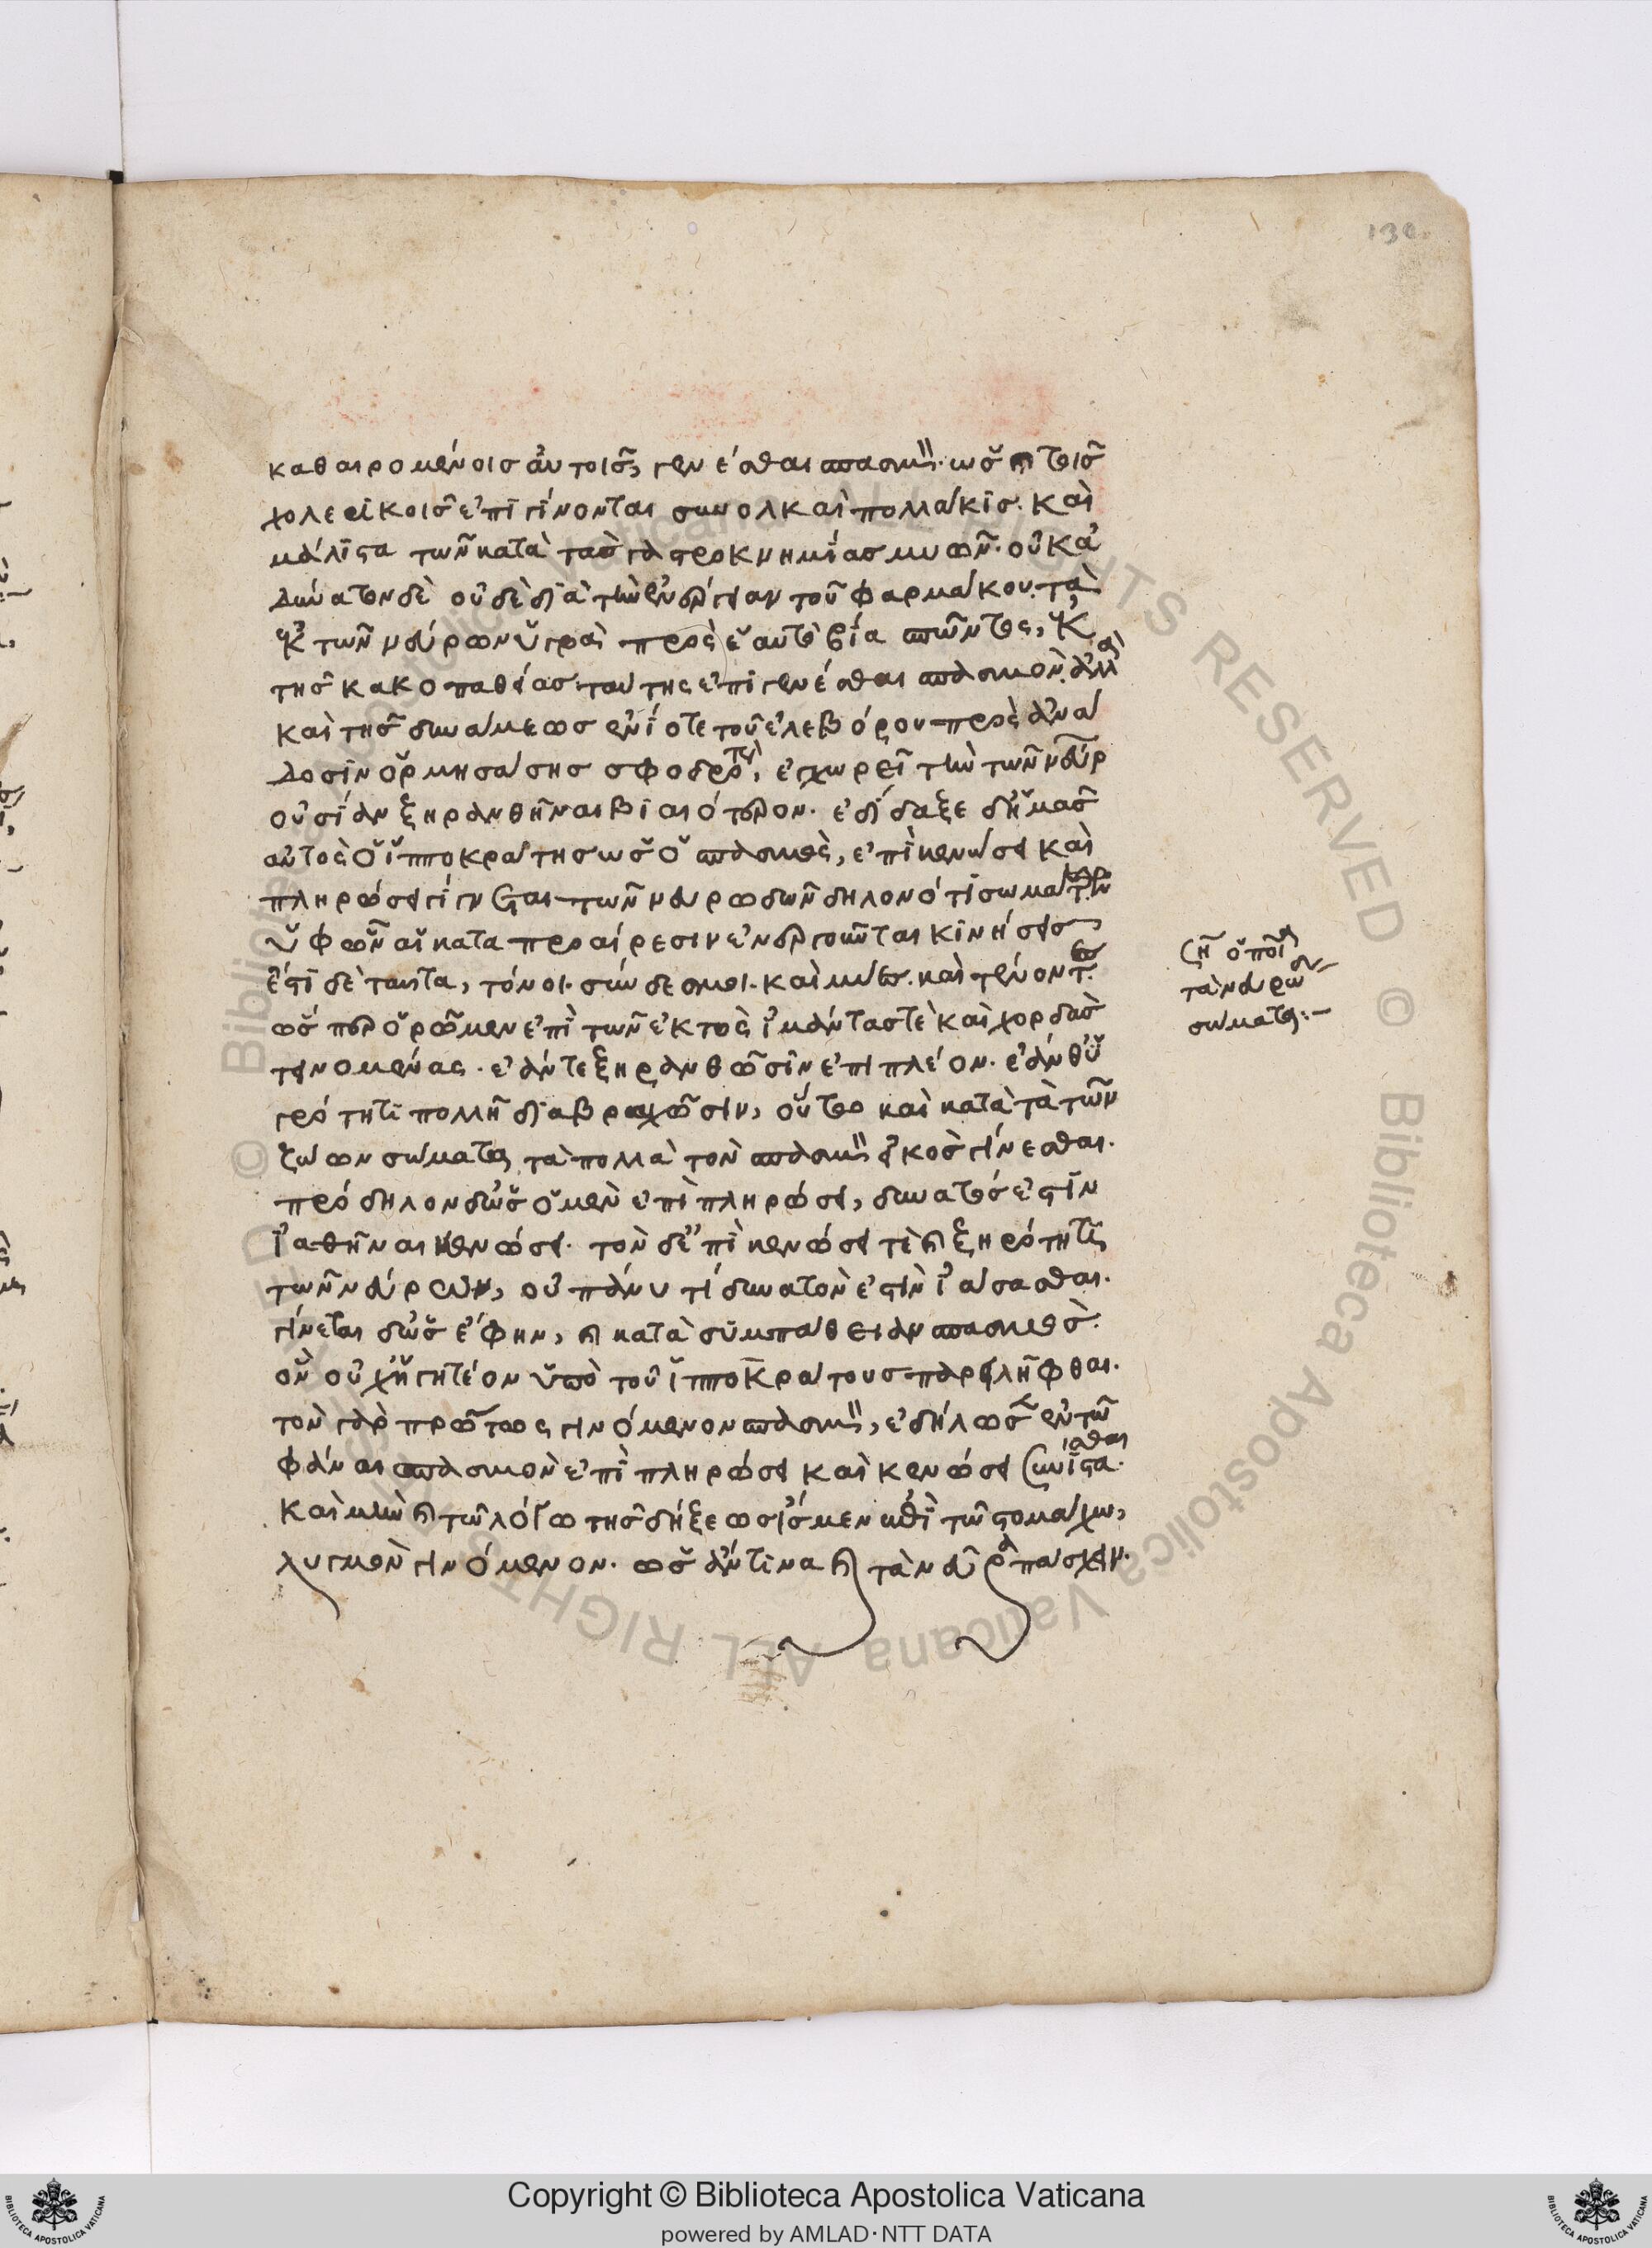 130
καθαιρομένοις αὐτοῖς, γενέσθαι σπασμόν. ὡς καὶ τοῖς
χολερικοῖς ἐπιγίνονται συνολκαὶ πολλάκις. καὶ
μάλιστα τῶν κατὰ τὰς γαστροκνημίας μυῶν. οὐκ ἀ
δύνατον δὲ οὐδὲ διὰ τὴν ἐνέργειαν τοῦ φαρμάκου. τὰ
ἐκ τῶν νεύρων ὑγρὰ πρὸς ἑαυτὸ βία σπῶντος, ἐκ
τῆς κακοπαθείας ταύτης ἐπιγενέσθαι σπασμόν. ἀλλὰ
καὶ τῆς δυνάμεως ἐνίοτε τοῦ ἐλεβόρου πρὸς ἀνά
δοσιν ὁρμησάσης σφοδρότερον, ἐγχωρεῖ τὴν τῶν νεύρων
οὐσίαν ξηρανθῆναι βιαιότερον. ἐδίδαξε δ' ἡμᾶς
αὐτὸς ὁ ἱπποκράτης ὡς ὁ σπασμὸς, ἐπὶ κενώσει καὶ
πληρώσει γίγνεται τῶν νευρωδῶν δηλονότι σωμάτων
ὑφ' ὧν αἱ κατα προαίρεσιν ἐνεργοῦνται κινήσεις
ἔστι δὲ ταῦτα, τόνοι. σύνδεσμοι. καὶ μύες. καὶ τένοντες.
ὥσπερ ὁρῶμεν ἐπὶ τῶν ἐκτὸς ἱμάντας τὲ καὶ χορδὰς
τεινομένας. ἐάν τε ξηρανθῶσιν ἐπιπλέον. ἐάν θ' ὑ
γρότητι πολλῆ διαβραχῶσιν, οὕτω καὶ κατὰ τὰ τῶν
ζώων σώματα τὰ πολλὰ τὸν σπασμὸν εἰκὸς γίνεσθαι.
πρόδηλον δ' ὡς ὁ μὲν ἐπὶ πληρώσει, δυνατός ἐστιν
ἰαθῆναι κενώσει. τὸν δ' ἐπὶ κενώσει τὲ καὶ ξηρότητι
τῶν νεύρων, οὐ πάνυ τί δυνατὸν ἐστὶν ἰάσασθαι.
γίνεται δ' ὡς ἔφην, καὶ κατὰ συμπάθειαν σπασμὸς.
ὃν οὐχ' ἡγητέον ὑπὸ τοῦ ἱπποκράτους παρειλῆφθαι.
τὸν γὰρ πρώτως γινόμενον σπασμόν, ἐδήλωσεν ἐν τῶ
φάναι σπασμὸν ἐπὶ πληρώσει καὶ κενώσει συνίστασθαι.
καὶ μὴν καὶ τῶ λόγω τῆς δήξεως ἴσμεν κἀπὶ τῶ στομάχω,
λυγμὸν γινόμενον. ὡς ἄν τινα καὶ τὰ νεῦρα πάσχειν.
ση ὁποῖα
τὰ νευρώδη
σώματα:-
Copyright © Biblioteca Apostolica Vaticana
powered by AMLAD·NTT DATA